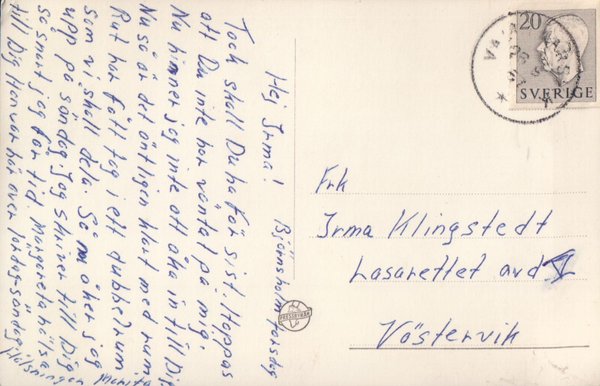 Hej Irma! Björnsholm torsdag
Tack skall Du ha för sist. Hoppas
att Du inte har väntat på mig.
Nu hinner jag inte att åka in till Dig
Nu så är det äntligen klart med rum
Rut har fått tag i ett dubbelrum
som vi skall dela. Så nu åker jag
upp på söndag. Jag skriver till Dig
så snart jag får tid. Margareta hälsar
till Dig Hon var här över lördag-söndag
Hälsningar
20
SVERIGE
PRESSBYRÅN
Frk
Irma Klingstedt
Lasarettet avd V
Västervik